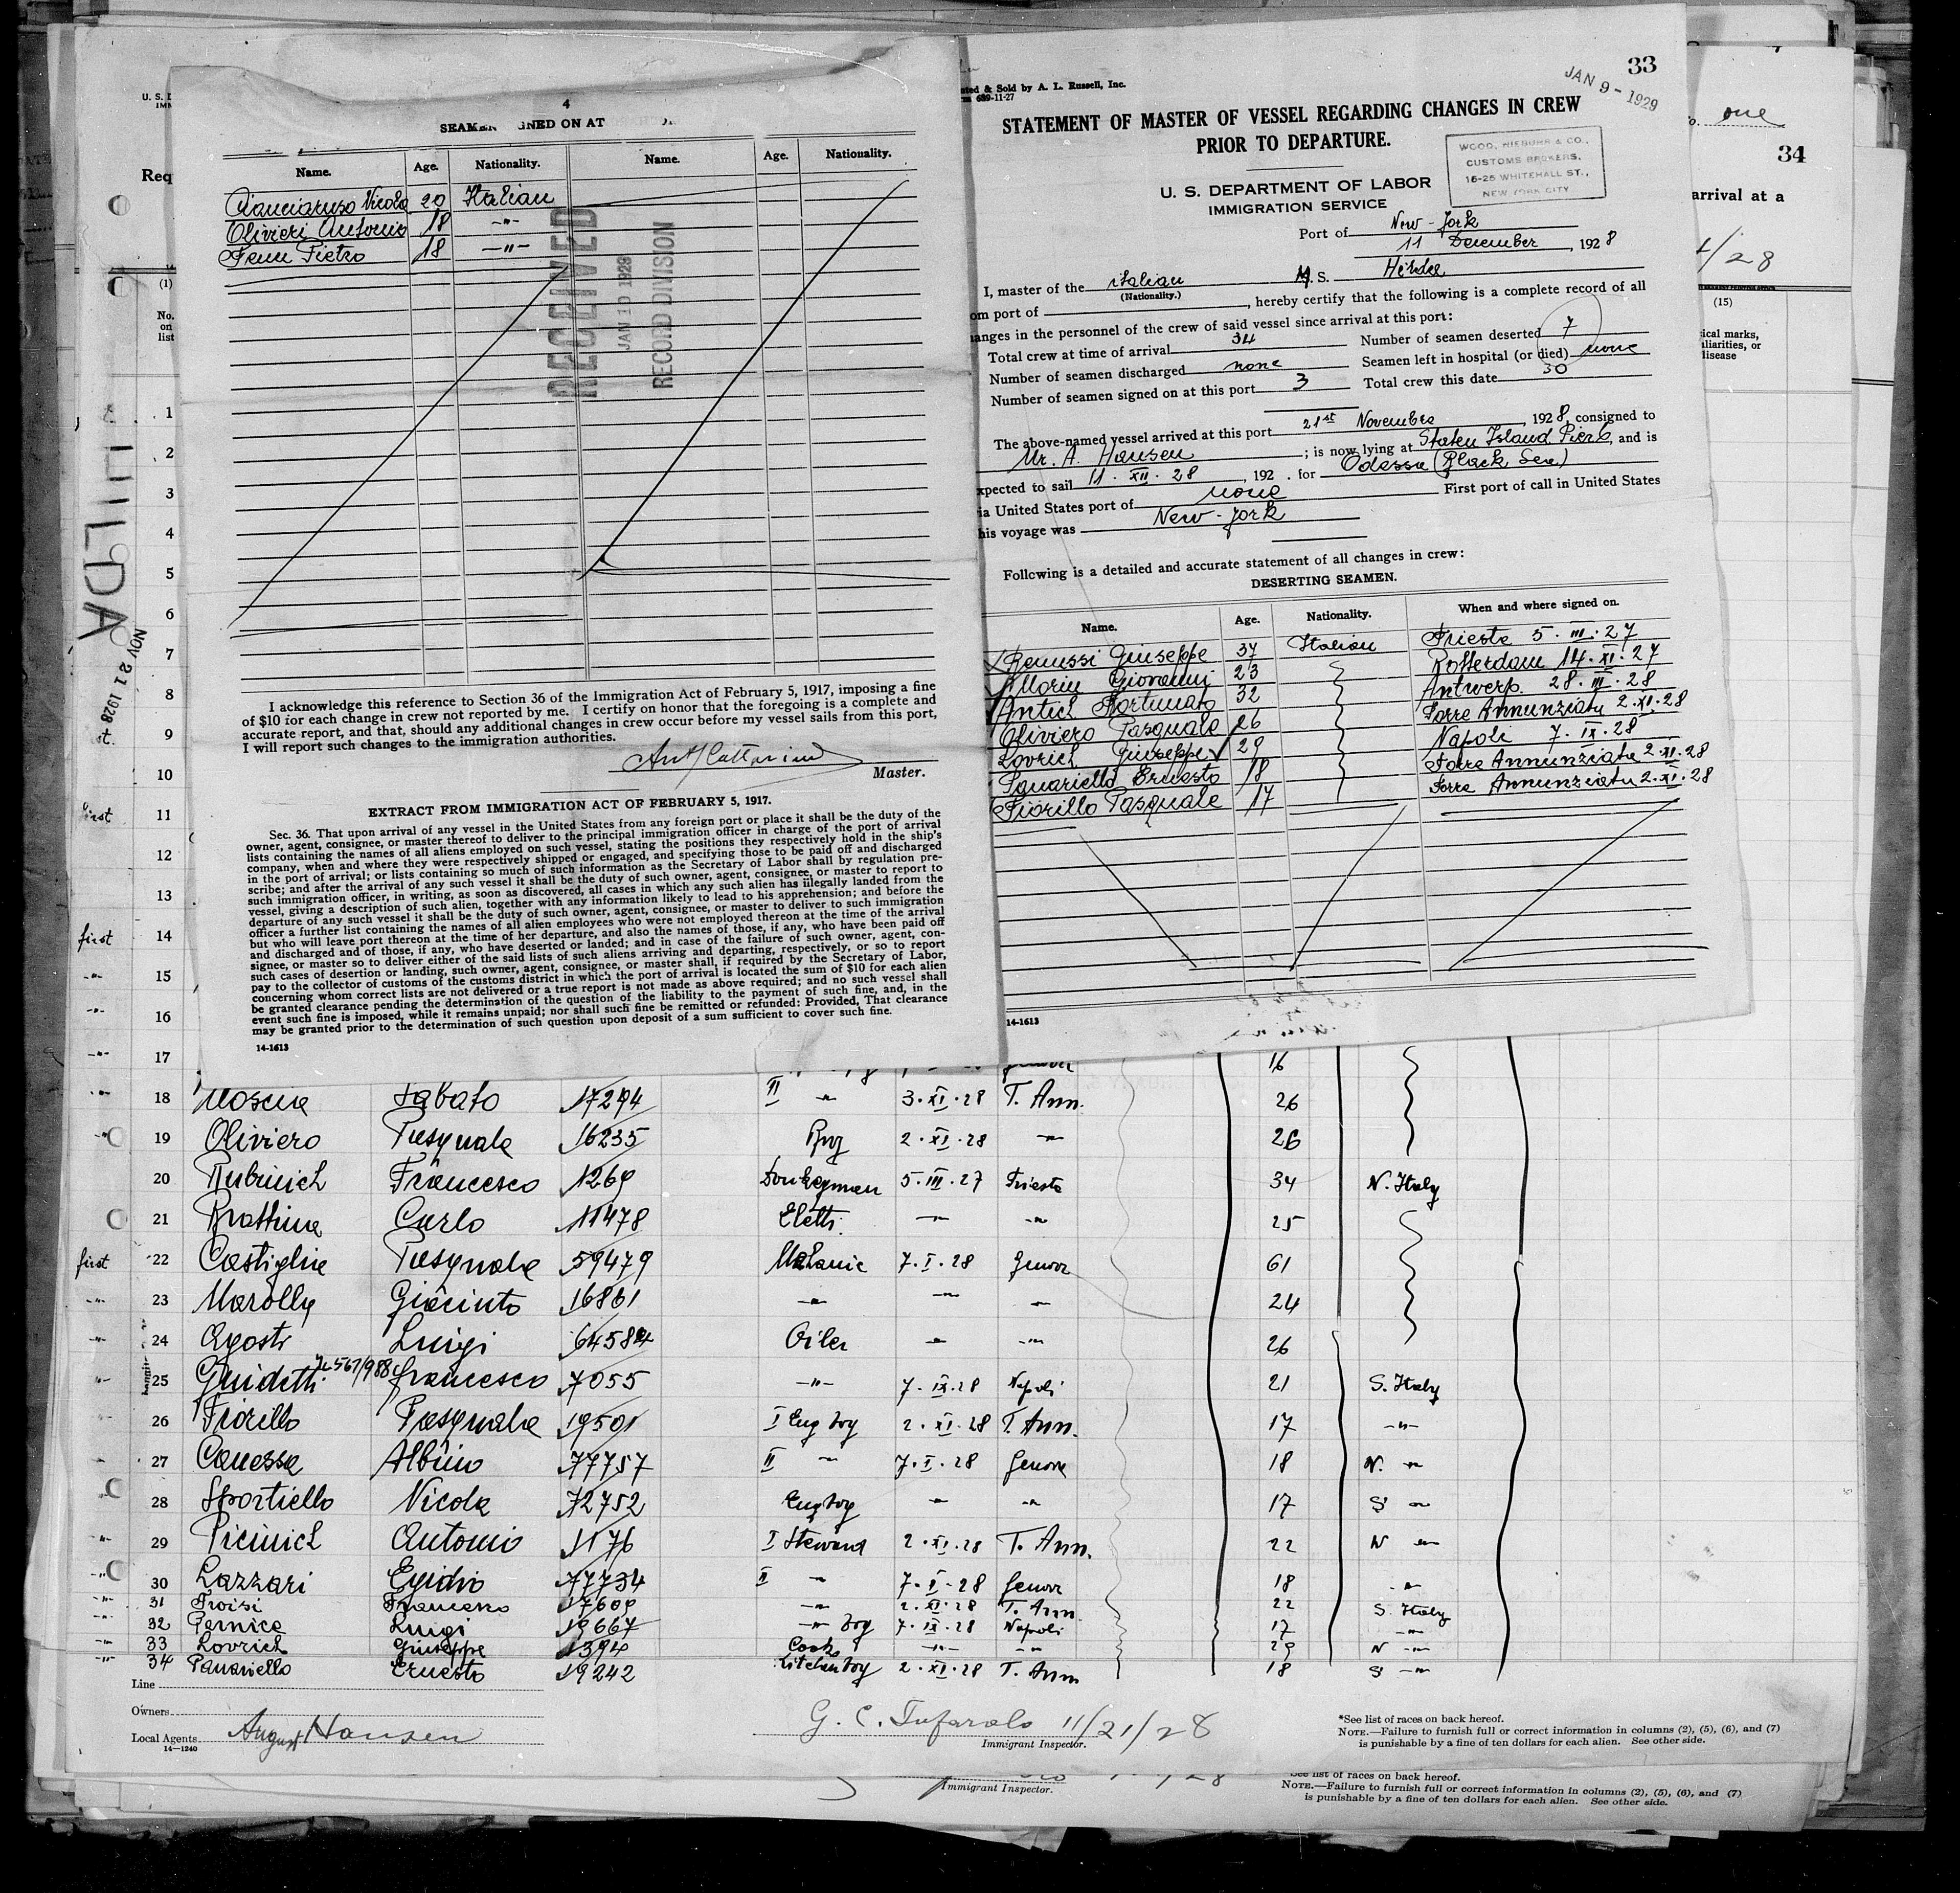 4
SEAMEN SIGNED ON AT
Name. Age. Nationality. Name. Age. Nationality.
Cianciaruso Nicola 20 Italian
Olivieri Antonio 18 -"-
Penn Pietro 18 -"-
RECEIVED
JAN 10 1929
RECORD DIVISION
I acknowledge this reference to Section 36 of the Immigration Act of February 5, 1917, imposing a fine
of $10 for each change in crew not reported by me. I certify on honor that the foregoing is a complete and
accurate report, and that, should any additional changes in crew occur before my vessel sails from this port,
I will report such changes to the immigration authorities.
Master.
EXTRACT FROM IMMIGRATION ACT OF FEBRUARY 5, 1917.
Sec. 36. That upon arrival of any vessel in the United States from any foreign port or place it shall be the duty of the
owner, agent, consignee, or master thereof to deliver to the principal immigration officer in charge of the port of arrival
lists containing the names of all aliens employed on such vessel, stating the positions they respectively hold in the ship's
company, when and where they were respectively shipped or engaged, and specifying those to be paid off and discharged
in the port of arrival; or lists containing so much of such information as the Secretary of Labor shall by regulation pre-
scribe; and after the arrival of any such vessel it shall be the duty of such owner, agent, consignee, or master to report to
such immigration officer, in writing, as soon as discovered, all cases in which any such alien has illegally landed from the
vessel, giving a description of such alien, together with any information likely to lead to his apprehension; and before the
departure of any such vessel it shall be the duty of such owner, agent, consignee, or master to deliver to such immigration
officer a further list containing the names of all alien employees who were not employed thereon at the time of the arrival
but who will leave port thereon at the time of her departure, and also the names of those, if any, who have been paid off
and discharged and of those, if any, who have deserted or landed; and in case of the failure of such owner, agent, con-
signee, or master so to deliver either of the said lists of such aliens arriving and departing, respectively, or so to report
such cases of desertion or landing, such owner, agent, consignee, or master shall, if required by the Secretary of Labor,
pay to the collector of customs of the customs district in which the port of arrival is located the sum of $10 for each alien
concerning whom correct lists are not delivered or a true report is not made as above required; and no such vessel shall
be granted clearance pending the determination of the question of the liability to the payment of such fine, and, in the
event such fine is imposed, while it remains unpaid; nor shall such fine be remitted or refunded: Provided, That clearance
may be granted prior to the determination of such question upon deposit of a sum sufficient to cover such fine.
14-1613
33
JAN 9 - 1929
ted & Sold by A. L. Russell, Inc.
689-11-27
STATEMENT OF MASTER OF VESSEL REGARDING CHANGES IN CREW
PRIOR TO DEPARTURE.
WOOD, NIEBUHR & CO.,
CUSTOMS BROKERS,
15-25 WHITEHALL ST.,
NEW YORK CITY
U. S. DEPARTMENT OF LABOR
IMMIGRATION SERVICE
Port of New-York
11 December, 1928
I, master of the italian M. S. Hilda
(Nationality.)
om port of , hereby certify that the following is a complete record of all
anges in the personnel of the crew of said vessel since arrival at this port:
Total crew at time of arrival 34 Number of seamen deserted 7
Number of seamen discharged none Seamen left in hospital (or died) none
Number of seamen signed on at this port 3 Total crew this date 30
The above-named vessel arrived at this port 21st Novembre, 1928, consigned to
Mr. A. Hansen ; is now lying at Staten Island Pier 6, and is
xpected to sail 11. XII. 28, 192 . for Odessa (Black Sea)
ia United States port of none First port of call in United States
his voyage was New-York
Following is a detailed and accurate statement of all changes in crew:
DESERTING SEAMEN.
Name. Age. Nationality. When and where signed on.
Benussi Giuseppe 37 Italian Trieste 5. III. 27
Morin Giovanni 23 Rotterdam 14. XI. 27
Antich Fortunato 32 Antwerp. 28. III. 28
Oliviero Pasquale 26 Torre Annunziata 2.XI.28
Lovrich Giuseppe 29 Napoli 7. IX. 28
Panariello Ernesto 18 Torre Annunziata 2.XI.28
Fiorillo Pasquale 17 Torre Annunziata 2.XI.28
14-1613
one
34
arrival at a
/28
(15)
ical marks,
liarities, or
disease
U. S. D
IMM
Req
(1)
No.
on
list
HILDA
NOV 21 1928
1
2
3
4
5
6
7
8
9
10
first 11
12
13
first 14
-"- 15
-"- 16
-"- 17 16
-"- 18 Moscia Sabato 17294 II -"- 3.XI.28 T. Ann. 26
-"- 19 Oliviero Pasquale 16235 2.XI.28 -"- 26
20 Rubinich Francesco 1269 Donkeyman 5.III.27 Trieste 34 N. Italy
21 Brattina Carlo 11478 Eletti. -"- -"- 25
first 22 Castiglia Pasquale 59479 Mechanic 7.I.28 Genova 61
-"- 23 Marolly Giacinto 16861 -"- -"- -"- 24
-"- 24 Agosti Luigi 64584 Oiler -"- -"- 26
-"- 25 Guidetti Francesco 7055 -"- 7.IX.28 Napoli 21 S. Italy
26 Fiorillo Pasquale 19501 I Eng boy 2.XI.28 T. Ann. 17 -"-
27 Canessa Albino 77757 II -"- 7.I.28 Genova 18 N. -"-
28 Sportiello Nicola 72752 Eng boy -"- -"- 17 S -"-
-"- 29 Picinich Antonio 1176 I Steward 2.XI.28 T. Ann. 22 N -"-
-"- 30 Lazzari Egidio 77734 II -"- 7.I.28 Genova 18 -"-
-"- 31 Troisi Francesco 17609 -"- 2.XI.28 T. Ann. 22 S. Italy
-"- 32 Pernice Luigi 19667 -"- boy 7.IX.28 Napoli 17 -"-
-"- 33 Lovrich Giuseppe 1394 Cook -"- -"- 29 N -"-
-"- 34 Panariello Ernesto 19242 Kitchen boy 2.XI.28 T. Ann 18 S -"-
Line
Owners
Local Agents August Hansen
14—1240
G. C. Tufarolo 11/21/28
Immigrant Inspector.
*See list of races on back hereof.
NOTE.—Failure to furnish full or correct information in columns (2), (5), (6), and (7)
is punishable by a fine of ten dollars for each alien. See other side.
Immigrant Inspector.
See list of races on back hereof.
NOTE.—Failure to furnish full or correct information in columns (2), (5), (6), and (7)
is punishable by a fine of ten dollars for each alien. See other side.